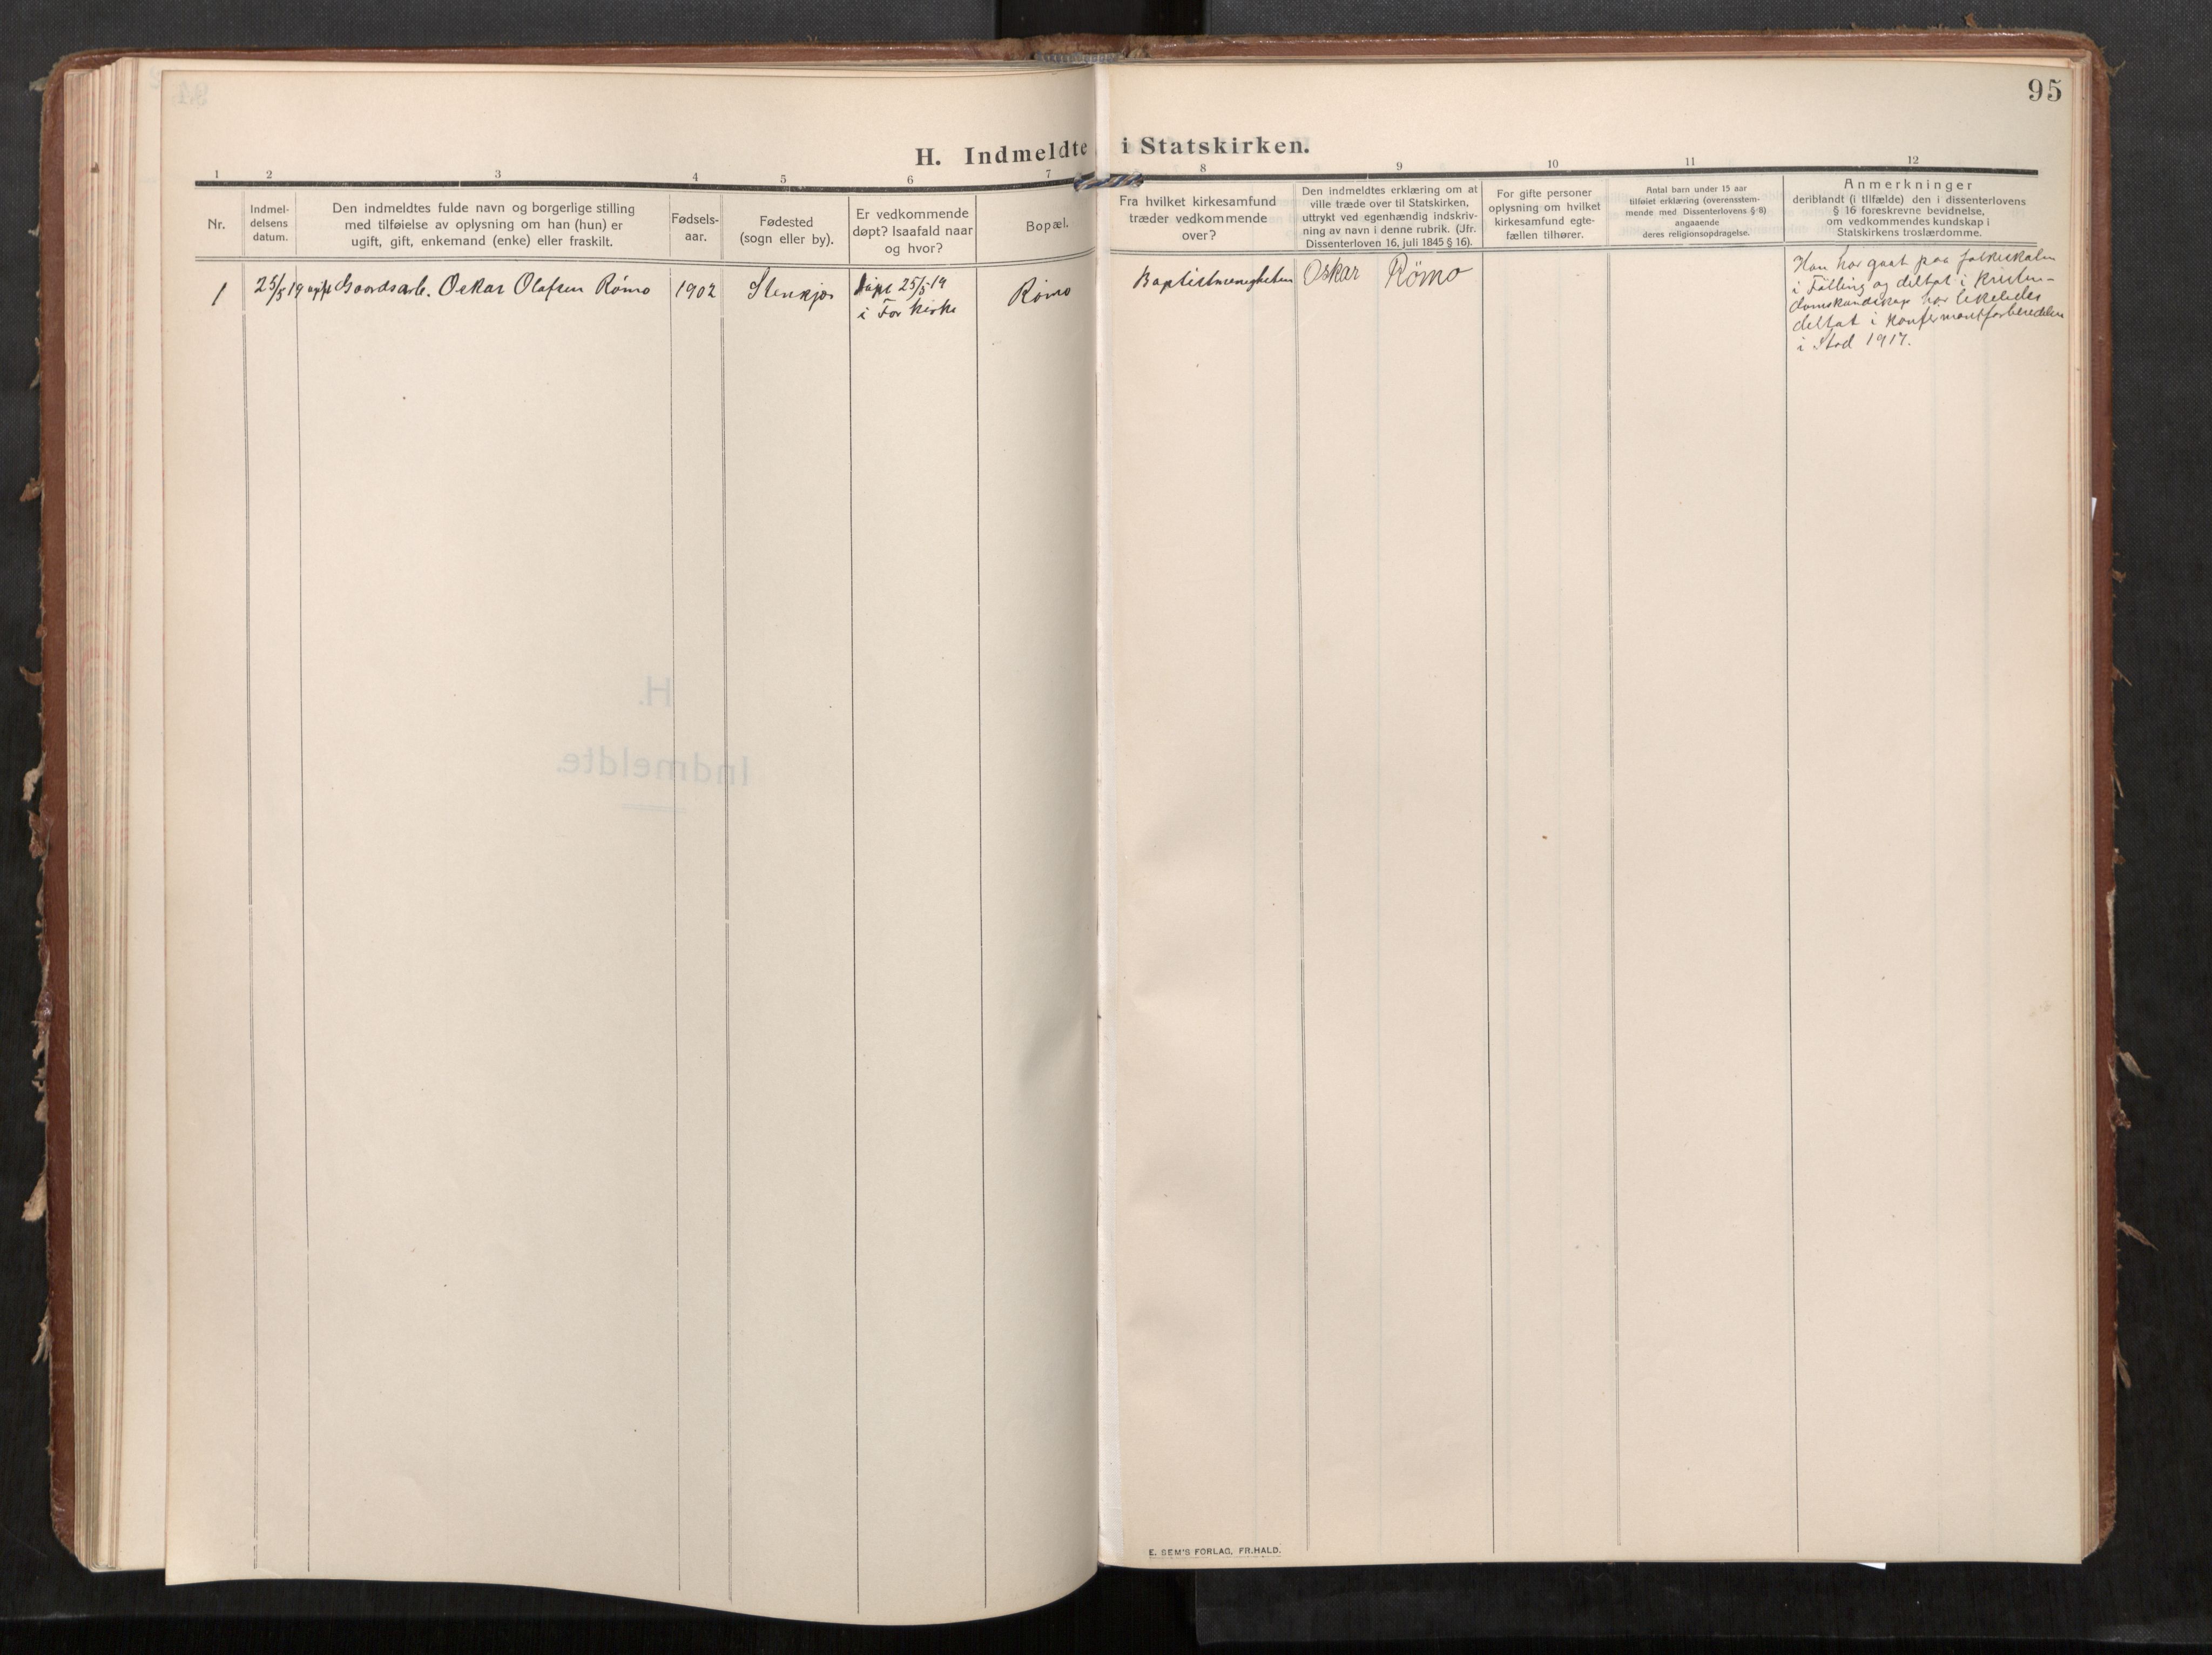 95
H. Indmeldte i Statskirken.
1 2 3 4 5 6 7 8 9 10 11 12
Nr.
Indmel-
delsens
datum.
Den indmeldtes fulde navn og borgerlige stilling
med tilføielse av oplysning om han (hun) er
ugift, gift, enkemand (enke) eller fraskilt.
Fødsels-
aar.
Fødested
(sogn eller by).
Er vedkommende
døpt? Isaafald naar
og hvor?
Bopæl.
Fra hvilket kirkesamfund
træder vedkommende
over?
Den indmeldtes erklæring om at
ville træde over til Statskirken,
uttrykt ved egenhændig indskriv-
ning av navn i denne rubrik. (Jfr.
Dissenterloven 16. juli 1845 § 16).
For gifte personer
oplysning om hvilket
kirkesamfund egte-
fællen tilhører.
Antal barn under 15 aar
tilføiet erklæring (overensstem-
mende med Dissenterlovens § 8)
angaaende
deres religionsopdragelse.
Anmerkninger
deriblandt (i tilfælde) den i dissenterlovens
§ 16 foreskrevne bevidnelse,
om vedkommendes kundskap i
Statskirkens troslærdomme.
1
25/5 19
Gaardsarb. Oskar Olafsen Rømo
1902
Stenkjær
Døpt 25/5-19
i For kirke
Rømo
Baptistmenigheten
Oskar Rømo
Han har gaat paa folkeskolen
i Følling og deltat i kristen-
domskundskap har likeledes
deltat i konfirmantforberedelsen
i Stod 1917.
H.
Indmeldte.
E. SEM'S FORLAG, FR.HALD.